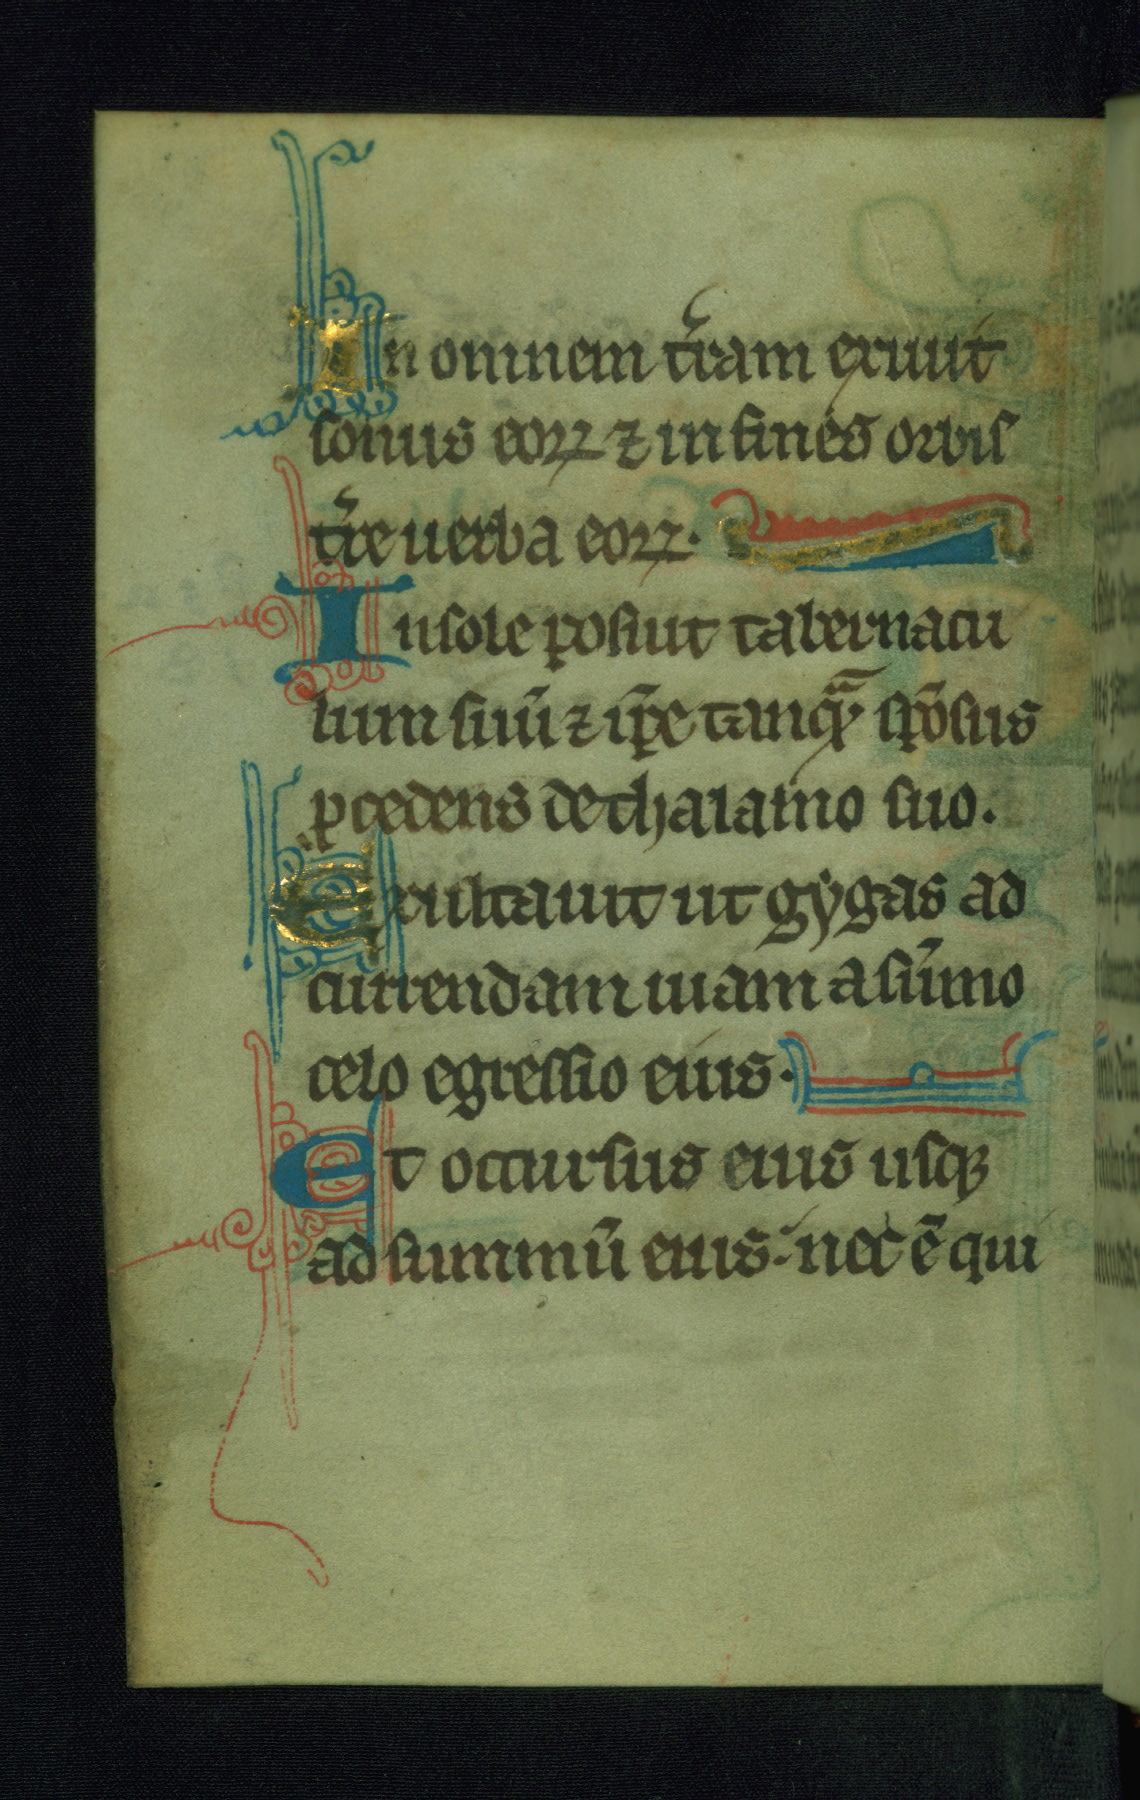 In omnem t̄ram exiuit
sonus eoꝝ ⁊ in fines orbis
t̄re uerba eoꝝ.
In sole posuit tabernacu
lum suū ⁊ ip̄e tanqͣꝫ sp̄osus
ꝓcedens de thalamo suo.
Exultauit ut gẏgas ad
currendam uiam a sūmo
celo egressio eius.
Et occursus eius usqꝫ
ad summū eius. nec ē qui